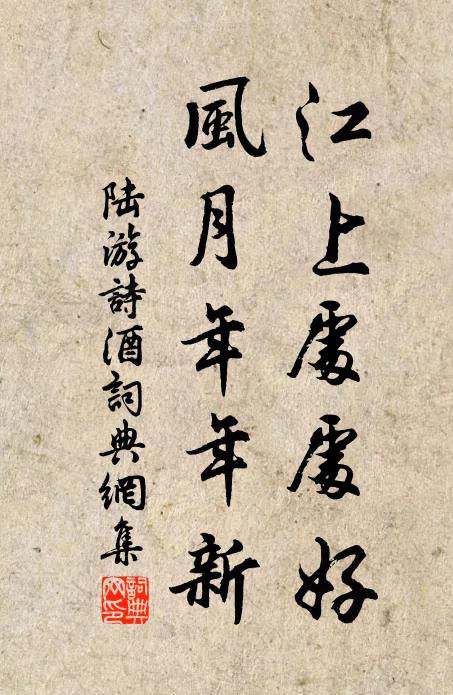 江上處處好
風月年年新
陆游詩酒詞典網集
詞典
网印